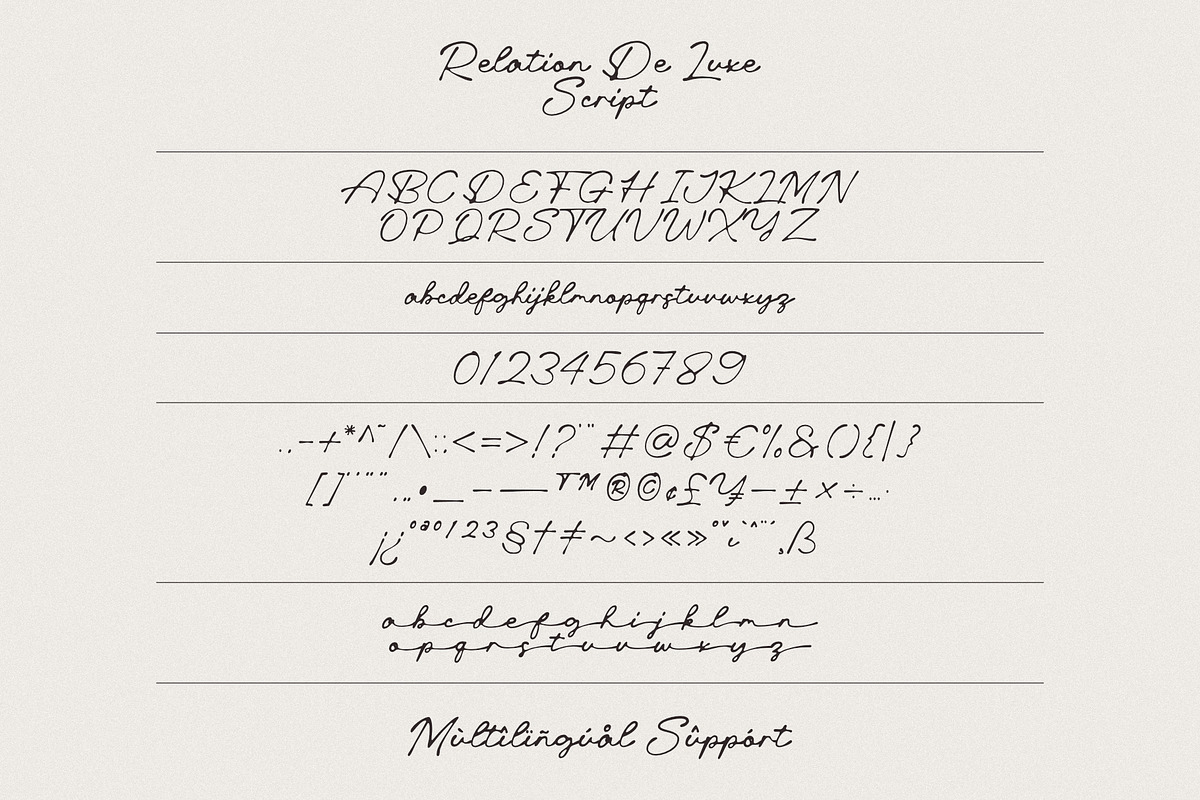 Relation De Luxe
Script
ABCDEFGHIJKLMN
OPQRSTUVWXYZ
abcdefghijklmnopqrstuvwxyz
0123456789
.,-+*^~/\:;<=>!?'"#@$€%&(){|}
[]‘’“”‚„•_–—™®©¢£¥−±×÷…·
¡¿ºª°¹²³§†‡~‹›«»°ˇ˛`^¨´¸ß
abcdefghijklmn
opqrstuvwxyz
Mùltîlïñgúål Sûppórt